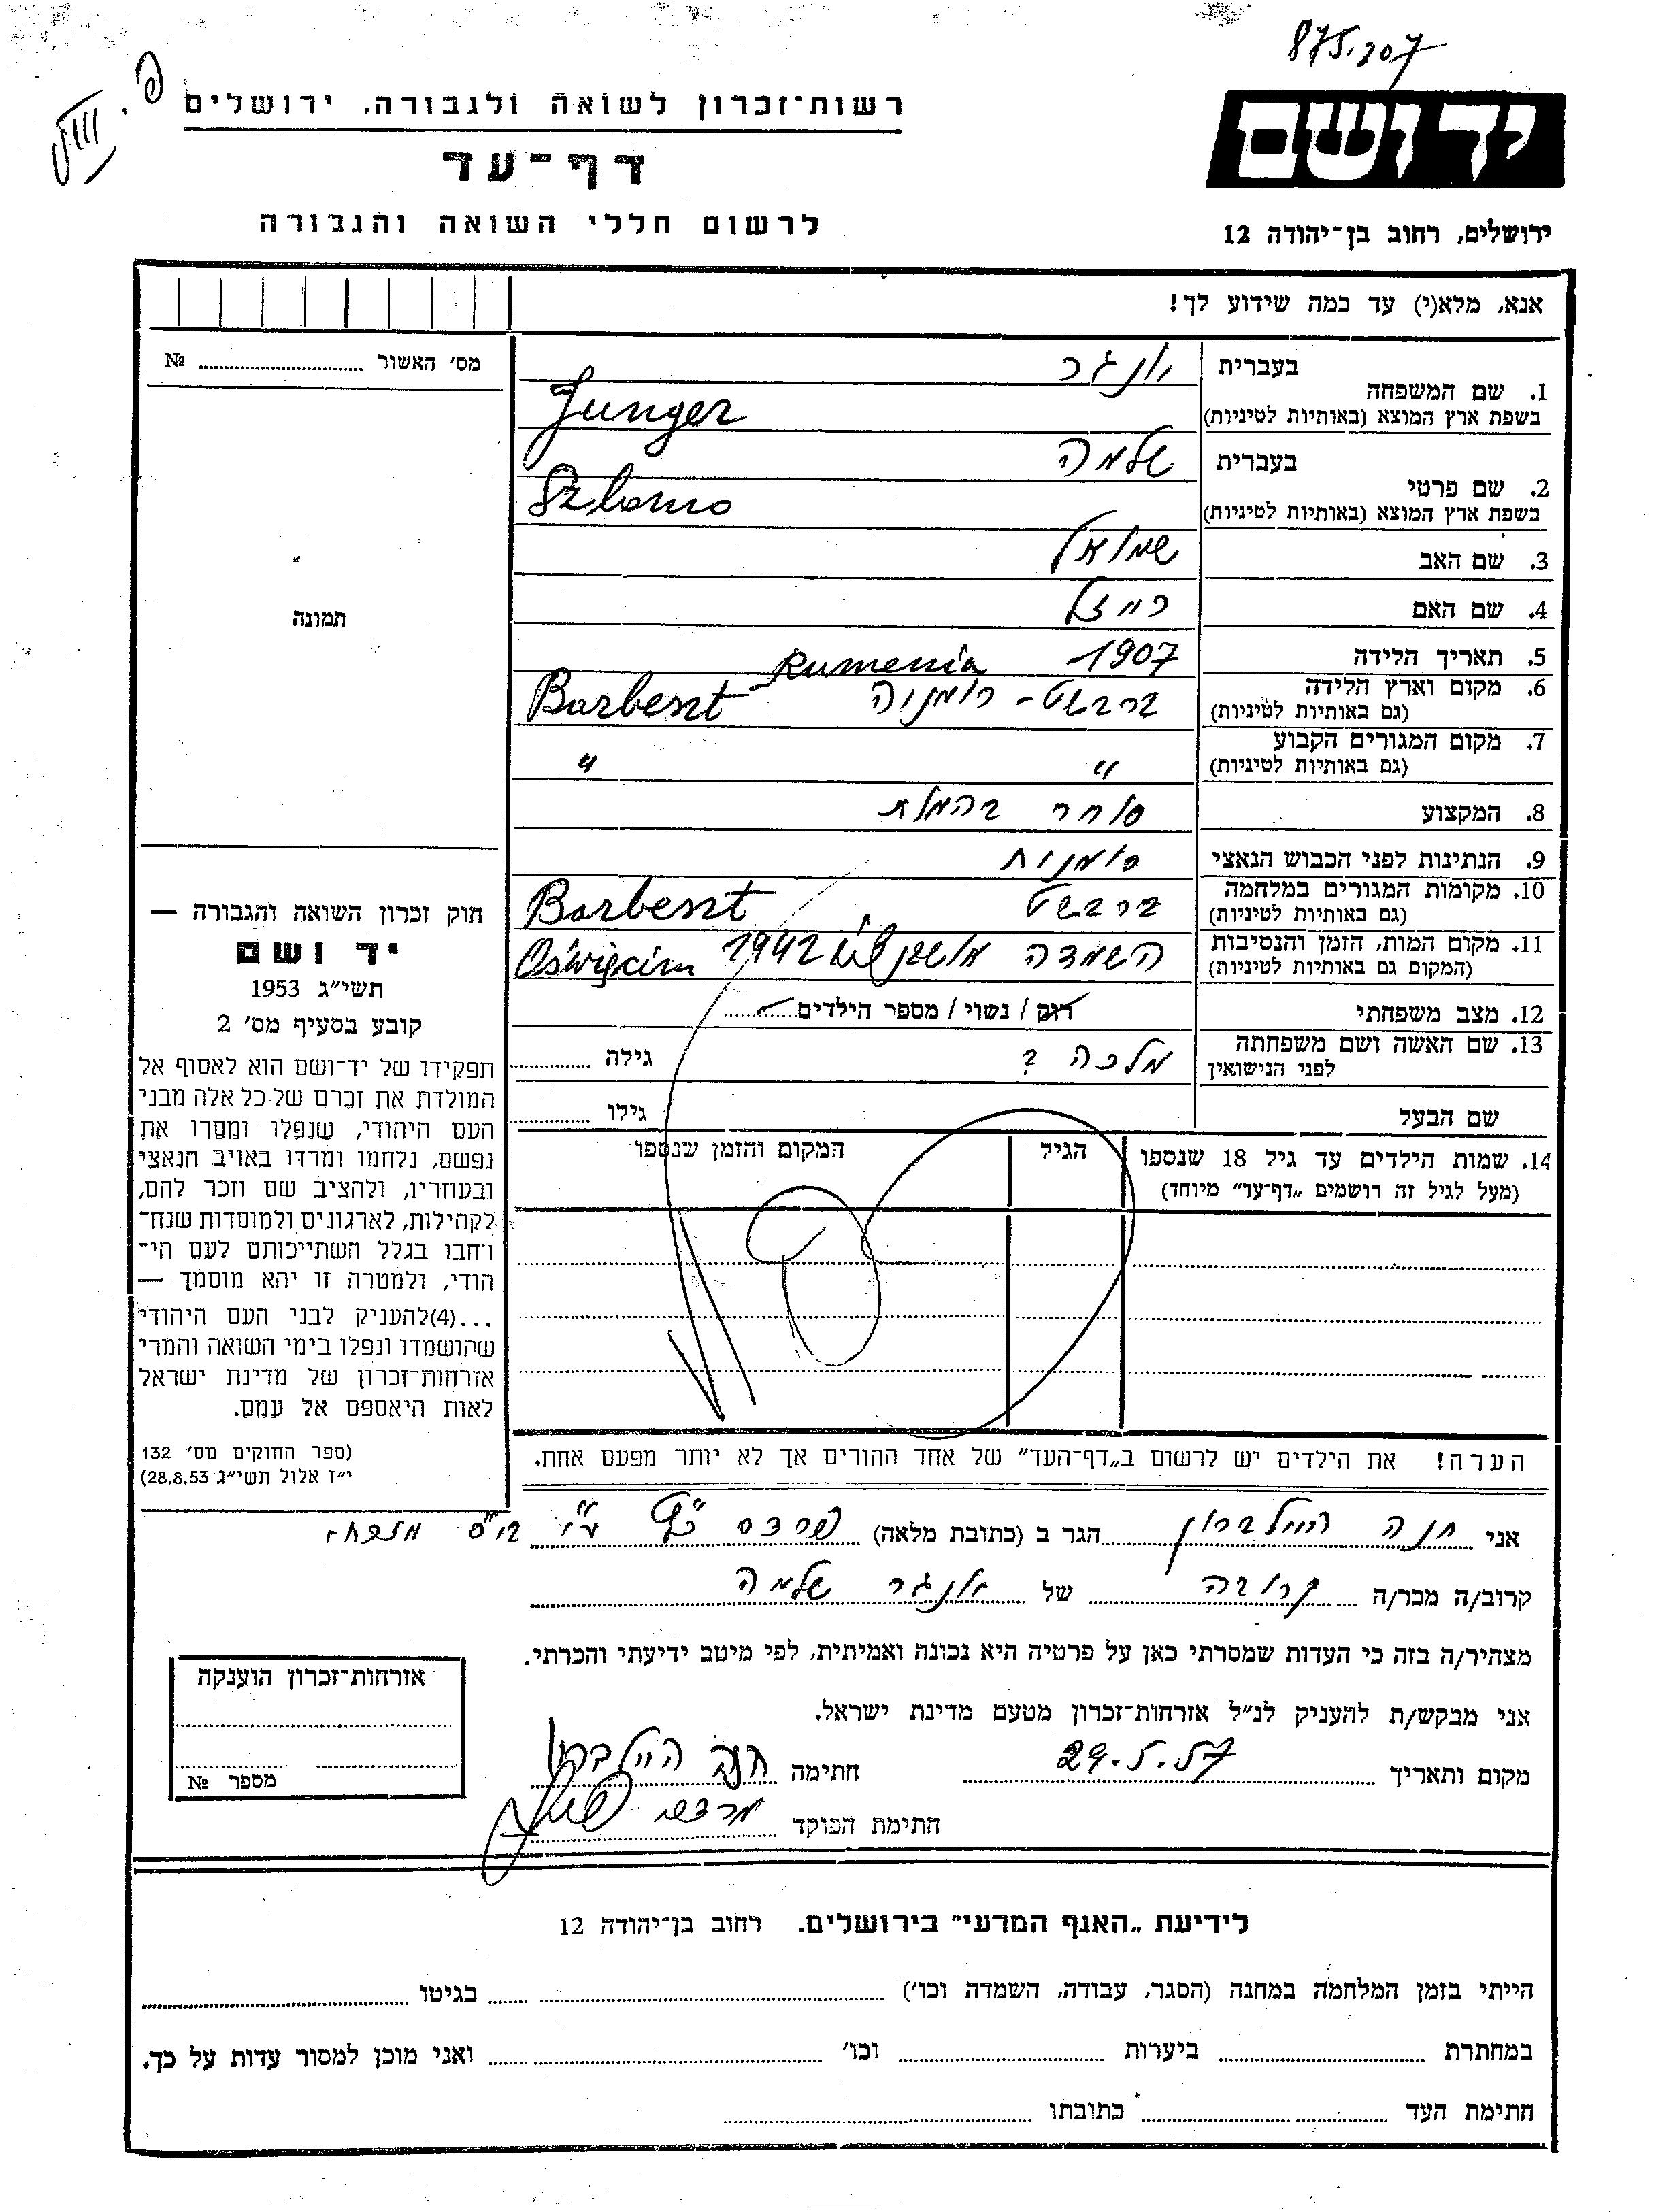 875.207
פ.
רשות־זכרון לשואה ולגבורה, ירושלים
דף־עד
לרשום חללי השואה והגבורה
יד ושם
ירושלים, רחוב בן־יהודה 12
אנא, מלא(י) עד כמה שידוע לך!
מס׳ האשור № 
תמונה
1. שם המשפחה בעברית יונגר
בשפת ארץ המוצא (באותיות לטיניות) Junger
2. שם פרטי בעברית שלמה
בשפת ארץ המוצא (באותיות לטיניות) Szlomo
3. שם האב שמואל
4. שם האם רייזל
5. תאריך הלידה 1907
6. מקום וארץ הלידה ברבשט - רומניה Barbeszt Rumenia
(גם באותיות לטיניות)
7. מקום המגורים הקבוע " "
(גם באותיות לטיניות)
8. המקצוע סוחר בהמות
9. הנתינות לפני הכבוש הנאצי רומנית
10. מקומות המגורים במלחמה ברבשט Barbeszt
(גם באותיות לטיניות)
11. מקום המות, הזמן והנסיבות השמדה 1942 Oświęcim
(המקום גם באותיות לטיניות)
12. מצב משפחתי רווק / נשוי / מספר הילדים
13. שם האשה ושם משפחתה מלכה ? גילה
לפני הנישואין
שם הבעל גילו
14. שמות הילדים עד גיל 18 שנספו הגיל המקום והזמן שנספו
(מעל לגיל זה רושמים „דף־עד” מיוחד)
הערה! את הילדים יש לרשום ב„דף־העד” של אחד ההורים אך לא יותר מפעם אחת.
חוק זכרון השואה והגבורה —
יד ושם
תשי״ג 1953
קובע בסעיף מס׳ 2
תפקידו של יד־ושם הוא לאסוף אל
המולדת את זכרם של כל אלה מבני
העם היהודי, שנפלו ומסרו את
נפשם, נלחמו ומרדו באויב הנאצי
ובעוזריו, ולהציב שם וזכר להם,
לקהילות, לארגונים ולמוסדות שנח־
רבו בגלל השתייכותם לעם הי־
הודי, ולמטרה זו יהא מוסמך —
...(4)להעניק לבני העם היהודי
שהושמדו ונפלו בימי השואה והמרי
אזרחות־זכרון של מדינת ישראל
לאות היאספם אל עמם.
(ספר החוקים מס׳ 132
י״ז אלול תשי״ג 28.8.53)
אני חנה היילברון הגר ב (כתובת מלאה) פרדס כץ ע״י
קרוב/ה מכר/ה קרובה של יונגר שלמה
מצהיר/ה בזה כי העדות שמסרתי כאן על פרטיה היא נכונה ואמיתית, לפי מיטב ידיעתי והכרתי.
אני מבקש/ת להעניק לנ״ל אזרחות־זכרון מטעם מדינת ישראל.
מקום ותאריך 29.5.57 חתימה חנה היילברון
חתימת הפוקד
אזרחות־זכרון הוענקה
מספר №
לידיעת „האגף המדעי” בירושלים. רחוב בן־יהודה 12
הייתי בזמן המלחמה במחנה (הסגר, עבודה, השמדה וכו׳) בגיטו
במחתרת ביערות וכו׳ ואני מוכן למסור עדות על כך.
חתימת העד כתובתו